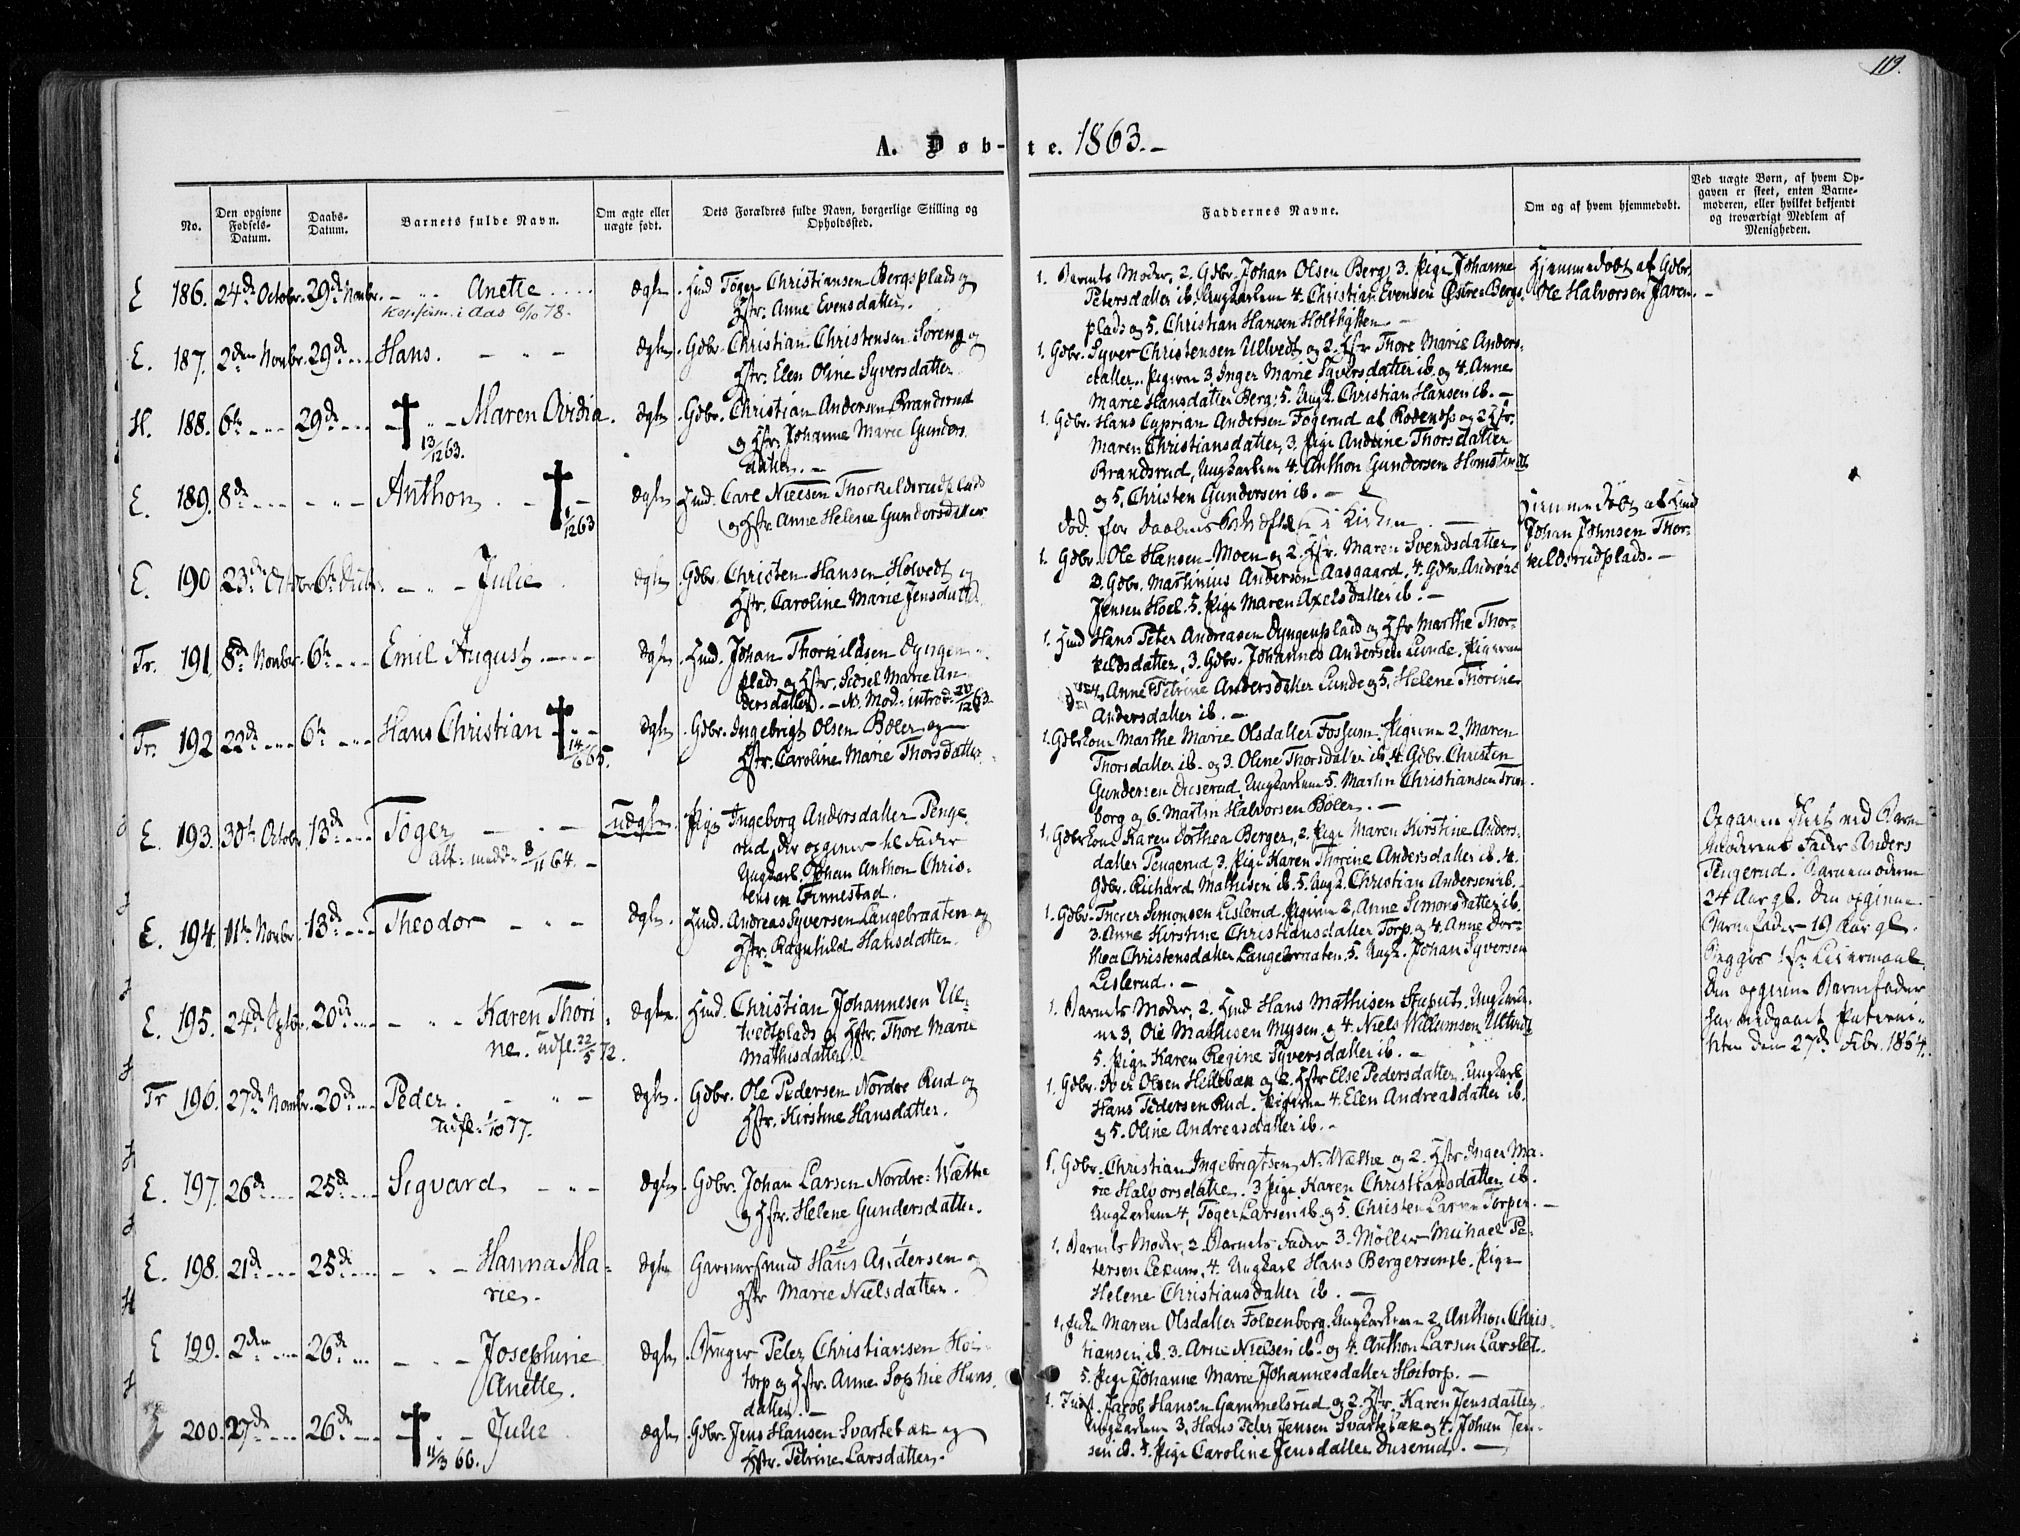 119.
A. Døb-te. 1863.-
No.
Den opgivne Fødsels-Datum.
Daabs-Datum.
Barnets fulde Navn.
Om ægte eller uægte født.
Dets Forældres fulde Navn, borgerlige Stilling og Opholdssted.
Faddernes Navne.
Om og af hvem hjemmedøbt.
Ved uægte Børn, af hvem Opgaven er skeet, enten Barnemoderen, eller hvilket bekjendt og troværdigt Medlem af Menigheden.
E 186. 24de Octobr. 29de Novbr. - " - Anette ægte. Huusmd Tøger Christiansen Bergsplads og
Konfirm. i Aas 6/10 78.
Hstr. Anne Evensdatter.
1. Barnets Moder, 2. Gdbr. Johan Olsen Berg, 3. Pige Johanne
Petersdatter ib. Ungkarlene 4. Christian Evensen Østre Bergs-
plads og 5. Christian Hansen Holtbytten. -
Hjemmedøbt af Gdbr.
Ole Halvorsen Jaren. -
E. 187. 2den Novbr. 29de Hans. - " - ægte. Gdbr. Christian Christensen Søreng og
Hstr. Elen Oline Syversdatter
1. Gdbr. Syver Christensen Ultvedt og 2. Hstr Thore Marie Anders-
datter. Pigerne 3. Inger Marie Syversdatter ib. og 4. Anne
Marie Hansdatter Berg; 5. Ungk. Christian Hansen ib. -
H. 188. 6te 29de - " - Maren Ovidia. ægte. Gdbr. Christian Andersen Brandsrud
13/12 63.
og Hstr. Johanne Marie Gunders-
datter. -
1. Gdbr. Hans Cyprian Andersen Togerud af Rødenæs og 2 Hstr.
Maren Christiansdatter, 3. Pige Andrine Thorsdatter
Brandsrud, Ungkarlene 4. Anthon Gundersen Homstvedt
og 5. Christen Gundersen ib. -
E. 189. 8de - " - Anthon ægte Huusmd. Carl Nielsen Thorkildsrudplads
1/12 63
og Hstr. Anne Helene Gundersdatter
Død før Daabens Bekræftelse i Kirken. -
Hjemmedøbt af Huusmd
Johan Johnsen Thor-
kildsrudplads. -
E. 190 23de Octobr 6te Decbr. - " - Julie. ægte Gdbr. Christen Hansen Hølvedt og
Hstr. Caroline Marie Jensdatter.
1. Gdbr. Ole Hansen Moen og 2. Hstr. Maren Svendsdatter
3. Gdbr. Martinius Andersen Aasgaard, 4. Gdbr. Andreas
Jensen Hoel. 5. Pige Maren Axelsdatter ib. -
Tr. 191. 8de Novbr. 6te Emil August. ægte. Huusmd. Johan Thorkildsen Dyngen-
plads og Hstr. Sidsel Marie An-
dersdatter. - NB. Mod. introd. 20/12 63.
1. Huusmd Hans Peter Andreasen Dyngenplads og Hstr Marthe Thor-
kildsdatter, 3. Gdbr. Johannes Andersen Lunde. Pigerne
4. Anne Petrine Andersdatter Lunde og 5. Helene Thorine
Andersdatter ib. -
Tr. 192 22de 6te Hans Christian ægte. Gdbr. Ingebrigt Olsen Bøler og
14/6 65.
Hstr. Caroline Marie Thorsdatter.
1. Gdbrkone Marthe Marie Olsdatter Fossum. Pigerne 2. Maren
Thorsdatter ib. og 3. Oline Thorsdatter ib. 4. Gdbr. Christen
Gundersen Duserud. Ungkarlene 5. Martin Christiansen Tron-
borg og 6. Martin Halvorsen Bøler. -
E. 193. 30te Octobr. 13de Tøger. - " - uægte. Pige Ingeborg Andersdatter Penge-
Att. medd. 8/11 64. -
rud, der opgiver til Fader
Ungkarl Johan Anthon Chris-
tensen Finnestad.
1. Gdbrkone Karen Dorthea Berger, 2. Pige Maren Kirstine Anders-
datter Pengerud, 3. Pige Karen Thorine Andersdatter ib. 4.
Gdbr. Richard Mathisen ib. 5. Ungk. Christian Andersen ib.
Opgaven skeet ved Barne-
moderens Fader Anders
Pengerud. Barnemoderen
24 Aar gl. Den opgivne
Barnefader 19 Aar gl.
Begges 1ste Leiermaal.
Den opgivne Barnefader
har vedgaaet Paterni-
teten den 27de Febr. 1864.
E. 194. 11te Novbr. 13de Theodor - " - ægte. Huusmd. Andreas Syversen Langebraaten og
Hstr. Ragnhild Hansdatter.
1. Gdbr. Therer Simonsen Lislerud. Pigerne 2. Anne Simonsdatter ib.
3. Anne Kirstine Christiansdatter Torp og 4. Anne Dor-
thea Christensdatter Langebraaten, 5. Ungk. Johan Syversen
Lislerud. -
E. 195. 24de Septbr. 20de - " - Karen Thori- ægte. Huusmd. Christian Johannesen Ul-
ne. Udfl. 22/5 72.
tvedtplads og Hstr. Thore Marie
Mathisdatter.
1. Barnets Moder, 2. Huusmd Hans Mathisen Stuput. Ungkarle-
ne 3. Ole Mathisen Mysen og 4. Niels Willumsen Ultvedt
5. Pige Karen Regine Syversdatter ib. -
Tr 196. 27de Novbr. 20de Peder. - " - ægte. Gdbr. Ole Pedersen Nordre Rud og
Udfl. 1/10 77.
Hstr. Kirstine Hansdatter.
1. Gdbr. Iver Olsen Hillebæk og 2. Hstr Else Pedersdatter. Ungkarl
Hans Pedersen Rud. Pigerne 4. Elen Andreasdatter ib.
og 5. Oline Andreasdatter ib. -
E. 197. 26de 25de Sigvard. - " - ægte. Gdbr. Johan Larsen Nordre Wæthe
og Hstr. Helene Gundersdatter.
1. Gdbr. Christian Ingebrigtsen N. Wæthe og 2. Hstr. Inger Ma-
rie Halvorsdatter. 3 Pige Karen Christiansdatter ib.
Ungkarlene 4. Tøger Larsen ib. og 5. Christen Larsen Torper. -
E. 198. 21de 25de - " - Hanna Ma- ægte Garversvend Hans Andersen og
rie.
Hstr Marie Nielsdatter.
1. Barnets Moder, 2. Barnets Fader 3. Møller Michael Pe-
tersen Lekum, 4. Ungkarl Hans Bergersen ib. Pige
Helene Christiansdatter ib. -
E 199. 2den 26de - " - Josephine ægte. Bruger Peter Christiansen Høi-
Anette.
torp og Hstr. Anne Sophie Hans-
datter. -
1. Enke Maren Olsdatter Folkenborg. Ungkarlene 2. Anthon Chris-
tiansen ib. 3. Arne Nielsen ib. og 4. Anthon Larsen Larslet.
5. Pige Johanne Marie Johannesdatter Høitorp. -
200. 27de 26de - " - Julie. ægte Gdbr. Jens Hansen Svartebæk og
11/3 66.
Hstr. Petrine Larsdatter.
1. Inds. Jacob Hansen Gammelsrud og 2. Hstr. Karen Jensdatter
Ungkarlene 3. Hans Peter Jensen Svartebæk og 4. Johan Jen-
sen ib. 5. Pige Caroline Jensdatter Duserud. -